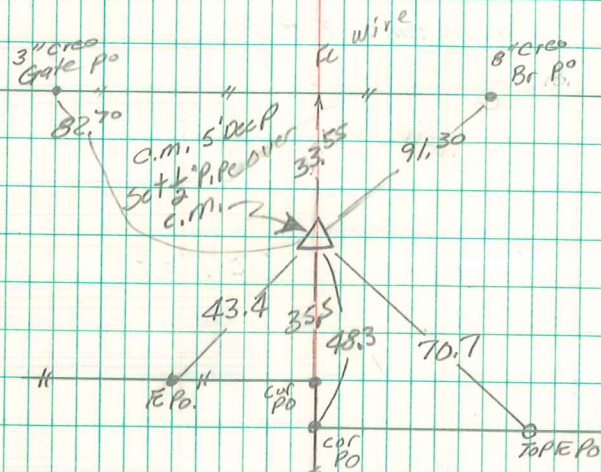 Fc wire
3" creo
Gate po
8" Creo
Br. Po
82.70
c.m. 5' Deep
Set ½" Pipe over
c.m.
33.55
91.30
43.4
35.5
48.3
70.7
FE Po.
cor
Po
cor
Po
Top FE Po